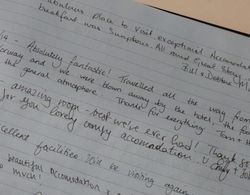 place to visit exceptional Accomodation
breakfast was Sumptuous. All round Great Stay
Jill + Debbie
Absolutely fantastic! Travelled all the way from
Norway and we were blown away by the hotel, the
the general atmosphere. Thanks for everything. Tom +
amazing room - best we've ever had! Thank
for you lovely comfy accomodation.
excellent facilities. I'll be visiting again
beautiful Accomodation
so much!